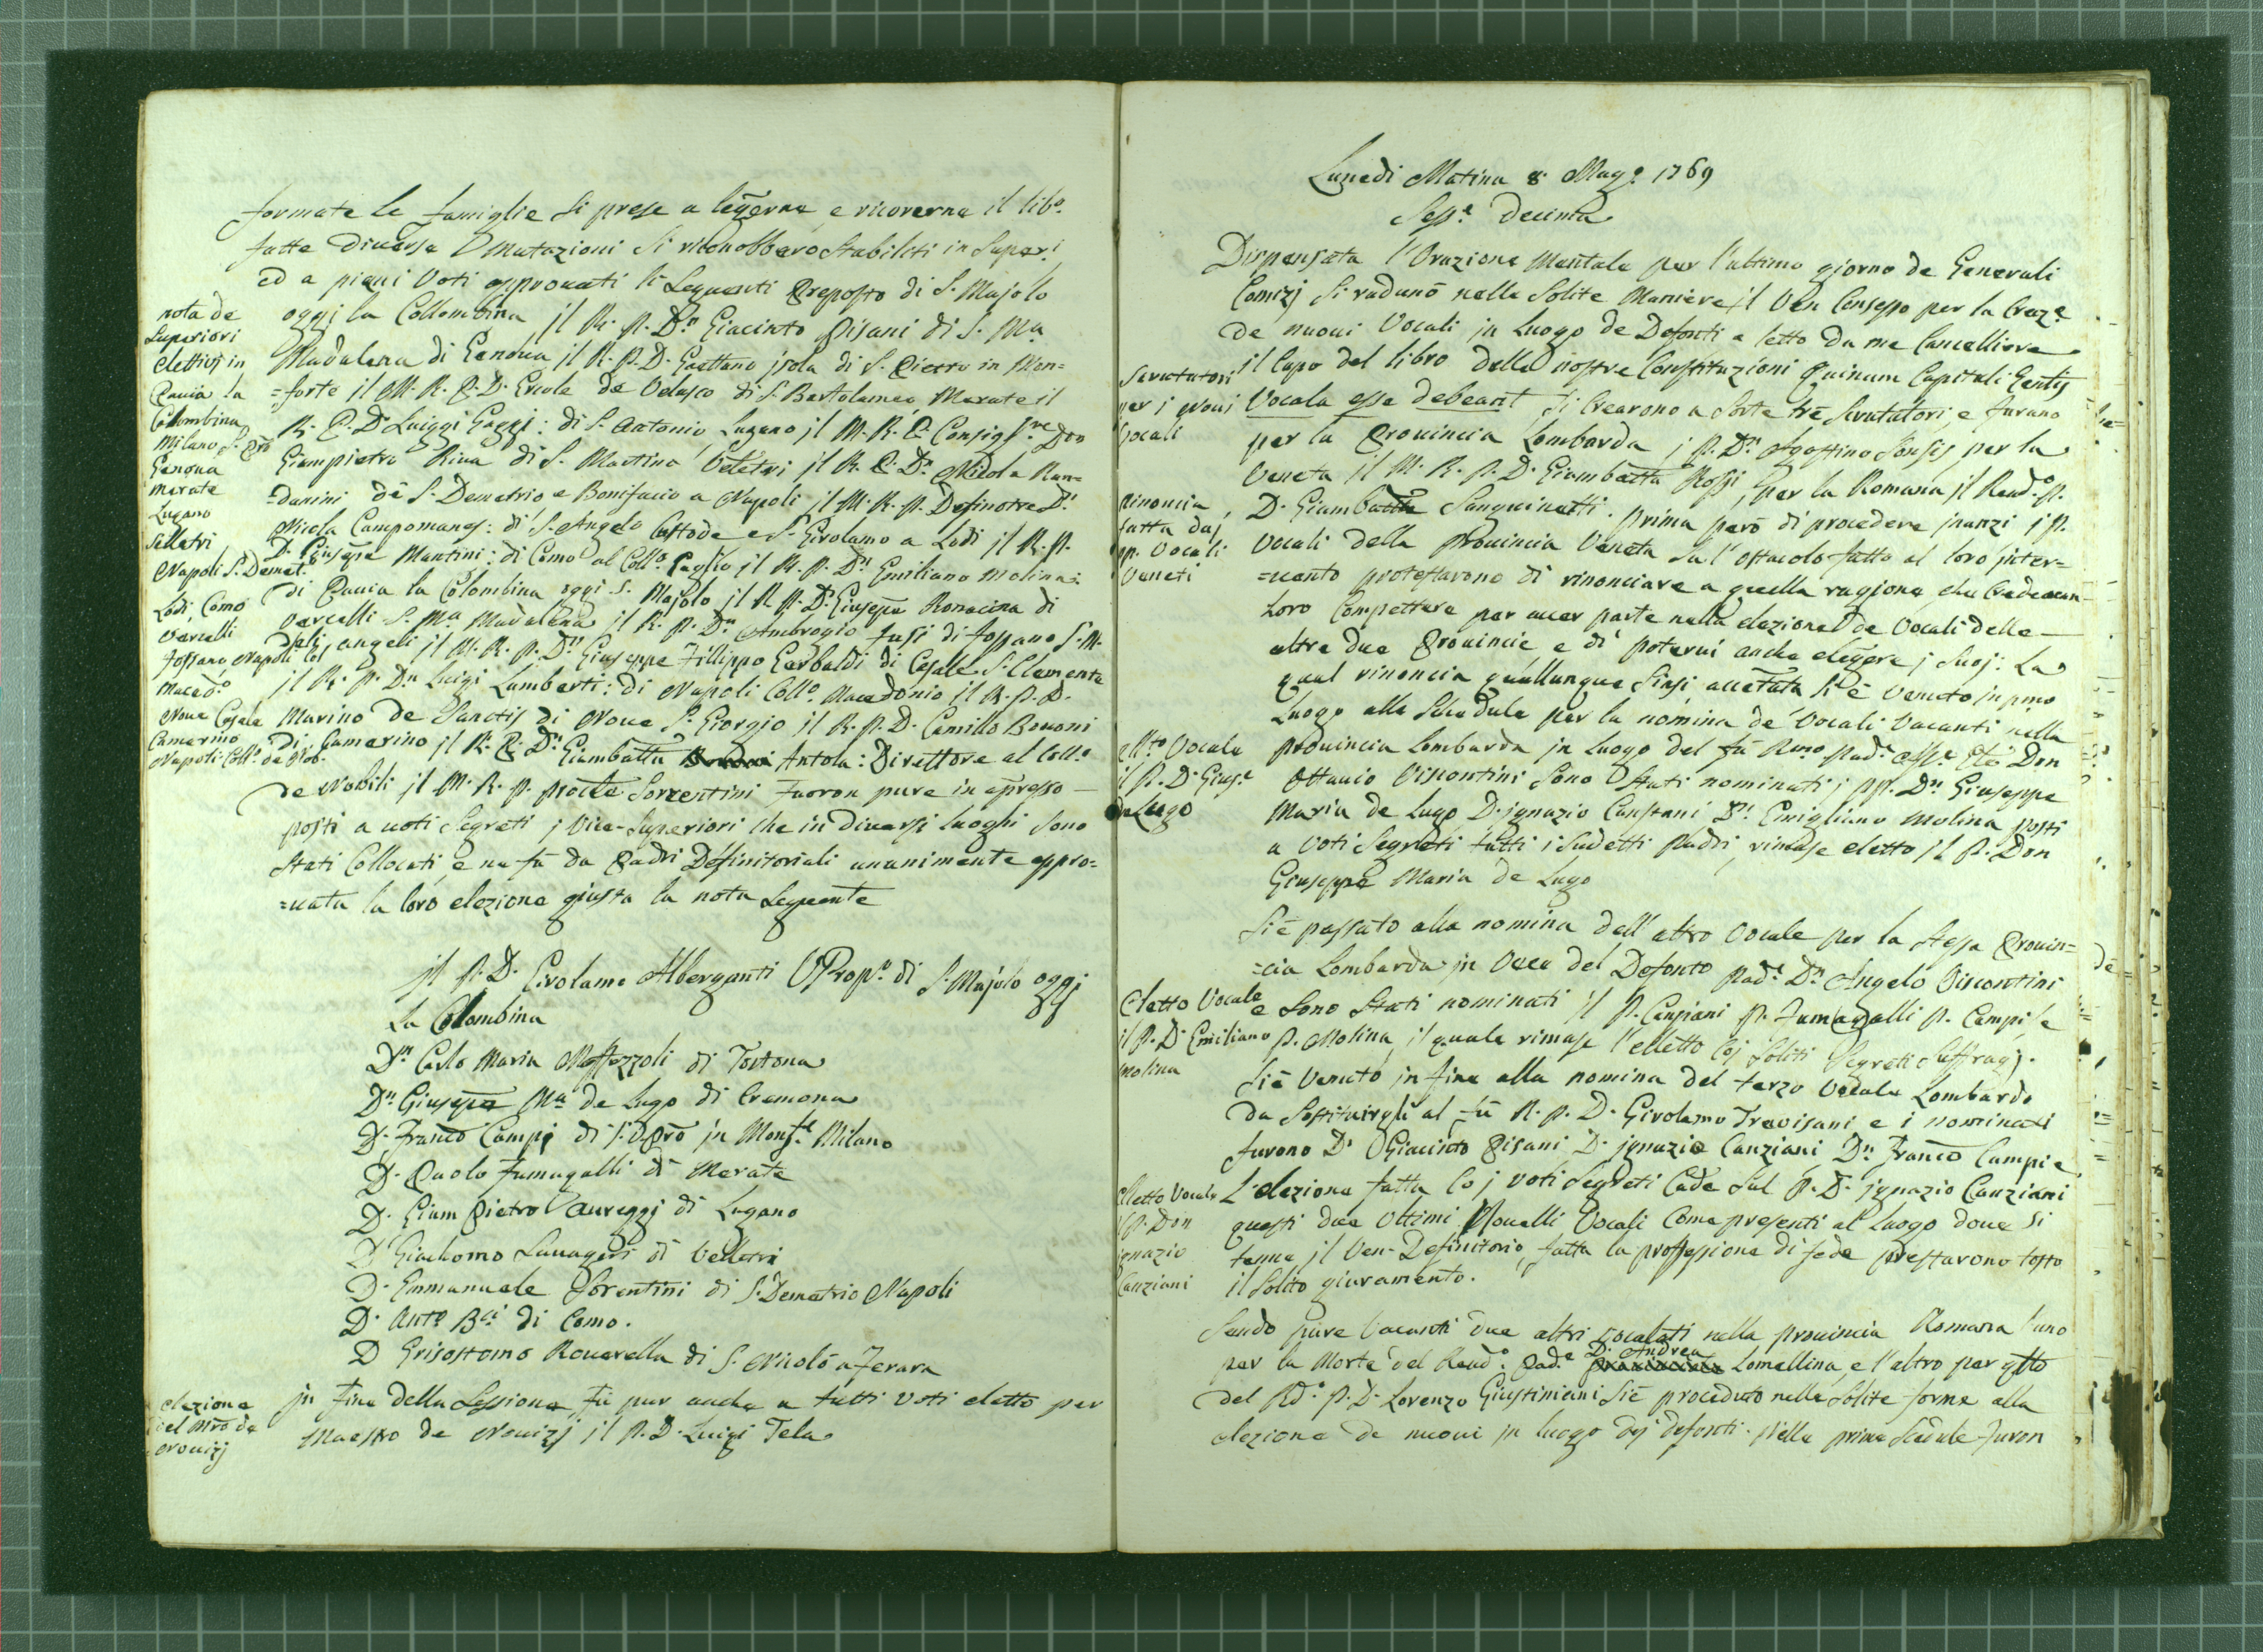 formate le famiglie si prese a legerne, e ricoverne il libº
fatte diverse mutazioni si riconobbero stabiliti in Superi
ed a pieni Voti approuati li Seguenti Preposto di S. Majolo
oggi la Collombina il R. P. Dn Giacinto Pisani di S. Ma
Madalena di Genoua il R. P. D. Gaettano isola di S. Pietro in Mon=
=forte il M. R. P. D. Ercole de Velasco di S. Bartolameo Merate il
R. P. D. Luiggi Gaggi: di S. Antonio Lugano il M. R. P. Consigre Don
Giampietro Riua di S. Martino Veletri il R. P. Dn Nicola Ran=
=danini de S. Demetrio e Bonifacio a Napoli il M. R. P. Definotre D.
Nicola Campomanes: di S. Angelo Custode e S. Girolamo a Lodi il R. P.
D. Giusepe Mantini: di Como al Collo Gaglio il R. P. Dn Emiliano Molina:
di Pauia la Colombina oggi S. Majolo il R P. D. Giusepe Ronacina di
vercelli S. Ma Madalena il R. P. Dn Ambrogio Fusi di Fossano S. M.
deli angeli il M. R. P. Dn Giuseppe Fillippo Gerbaldi di Casale S. Clemente
il R. P. Dn Luigi Lamberti: di Napoli Collo Macedonio il R. P. D.
Marino de Sanctis di Noue S. Giorgio il R. P. D. Camillo Bononi
di Camerino il R. P. Dn Giambatta Antola: Direttore al Collo
de Nobili il M. R. P. Sorrentini Furon pure in apresso
posti a uoti Segreti i Vice-Superiori che in diuersi luoghi sono
stati Collocati, e ne fù da Padri Definitoriali unanimente appro=
=uata la loro elezione giusta la nota Seguente
nota de
Superiori
elettisi in
Pauia la
Colombina
Milano S. Pro
Genoua
merate
Lugano
Velletri
Napoli S. Demet.
Lodi Como
Vercelli
Fossano Napoli
Macedo
Noue Casale
Camerino
Napoli Collo de Nob.
il P. D. Girolamo Alberganti VPropo di S. Majolo oggi
La Colombina
Dn Carlo Maria Maffezzoli di Tortona
Dn Giusepe Ma de Lugo di Cremona
D. Franco Campi di S. Pro in Monfe Milano
D. Paolo Fumagalli di Merate
D. Giam Pietro Aureggi di Lugano
D Giachomo Lauagers di Velletri
D. Emmanuele Sorentini di S. Demetrio Napoli
D. Anto Bci di Como.
D Grisostomo Rouerella di S. Nicolò a Ferara
in Fine della Sessione Fù pur anche a tutti voti eletto per
Maestro de Nouizj il P. D. Luigi Tela
elezione
del Mro de
Nouizj
Lunedi Matina 8. Magº 1769
Sesse Decima
Dispensata l'Orazione Mentale per l'ultimo giorno de Generali
Comizj si radunò nelle Solite Maniere il Ven Consesso per la Creaze
de nuoui Vocali in Luogo de Defonti e letto da me Cancelliere
il Capo del libro delle nostre Constituzioni Quinam Capituli Gentis
Vocale esse debeant si crearono a sorte trè Scrutatori, e furano
per la Prouincia Lombarda i P. Dn Agostino Sonsis, per la
Veneta il M. R. P. D. Giambatta Rossi, per la Romana il Rendo P.
D. Giambatta Sanguinetti. prima però di procedere inanzi i P.
Vocali della Prouincia Veneta su l'ostacolo fatto al loro inter=
=uento protestarono di rinonciare a quella ragione che credeuan
Loro Compettere per auer parte nella elezione de Vocali delle
altre due Prouincie e di poterui anche elegere i suoj: La
qual rinoncia quallunque siasi accetata si è Venuto in pmo
Luogo alle Schedule per la nomina de Vocali Vacanti nella
prouincia Lombarda in luogo del fù Rmo Pade Don
Ottauio Visontini sono stati nominati i PP. Dn Giuseppe
Maria de Lugo D. ignazio Canstani D. Emigliano Molina posti
a Voti Segreti tutti i Sudetti Paddri rimase eletto il P. Don
Giuseppe Maria de Lugo
Si è passato alla nomina dell'altro Vocale per la stessa Prouin=
=cia Lombarda in Vece del Defonto Pade Dn Angelo Visontini
e sono stati nominati il P. Canziani P. Fumagalli P. Campi, e
P. Molina, il quale rimase l'elletto coi soliti Segreti Suffragi.
Si è Venuto in fine alla nomina del terzo Vocale Lombardo
da sostituirgli al fù R. P. D. Girolamo Trevisani e i nominati
furono D. Giacinto Pisani D. ignazio Canziani Dn Franco Campi e
L'elezione fatta Co i voti segreti Cade sul P. D. ignazio Canziani
questi due Ultimi Nouelli Vocali Come presenti al luogo doue si
tenne il Ven. Definitorio, fatta la proffessione di fede prestarono tosto
il solito giuramento.
Sendo pure Vacanti due altri vocalati nella prouincia Romana l'uno
per la Morte del Rendo Pade D. Andrea Lomellina, e l'altro per qtto
del Rdo P. D. Lorenzo Giustiniani Si è proceduto nelle solite forme alla
elezione de nuoui in luogo dei defonti. Nella prima Scedule furon
Scrutatori
per i nuoui
Vocali
rinoncia
fatta daj
pp. Vocali
Veneti
ellto Vocale
il P. D. Giuse
de Lugo
eletto Vocale
il P. D. Emiliano
Molina
elletto Vocale
il P. Don
ignazio
Canziani